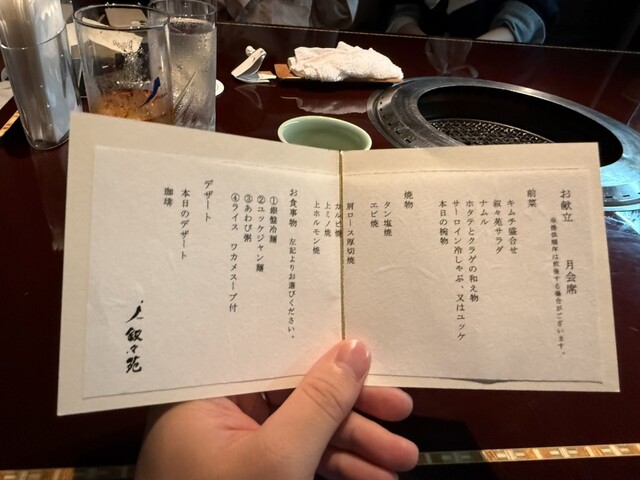 お献立　月会席
※焼依頼序は前後する場合がございます。
前菜
キムチ盛合せ
叙々苑サラダ
ナムル
ホタテとクラゲの和え物
サーロイン冷しゃぶ、又はユッケ
本日の椀物
焼物
タン塩焼
エビ焼
肩ロース厚切焼
カルビ焼
上ミノ焼
上ホルモン焼
お食事物　左記よりお選びください。
①銀盤冷麺
②ユッケジャン麺
③あわび粥
④ライス　ワカメスープ付
デザート
本日のデザート
珈琲
叙々苑